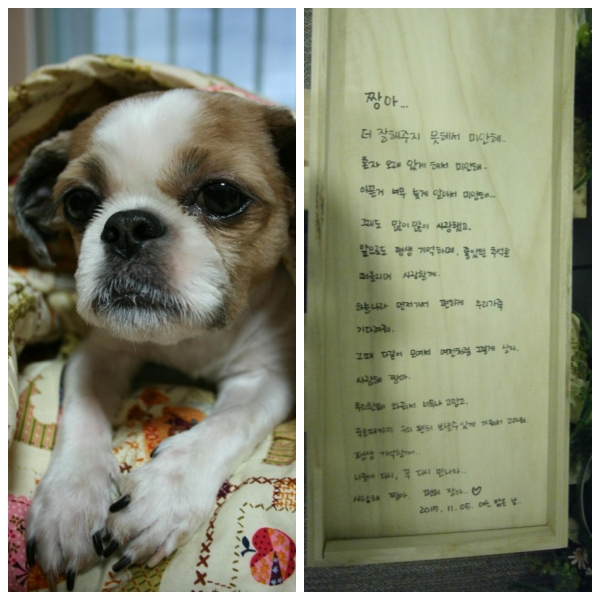 짱아...
더 잘해주지 못해서 미안해..
혼자 오래 있게 해서 미안해..
아픈거 너무 늦게 알아서 미안해..
그래도 많이많이 사랑했고,
앞으로도 평생 기억하며, 좋았던 추억을
떠올리며 사랑할게.
하늘나라 먼저가서 편하게 우리가족
기다려줘.
그때 다같이 모여서 예전처럼 그렇게 살자.
사랑해 짱아.
우리한테 와줘서 너무나 고맙고,
평생 기억할게..
나중에 다시, 꼭 다시 만나자...
사랑해 짱아. 편히 자.. ♡
2015. 11. 05.